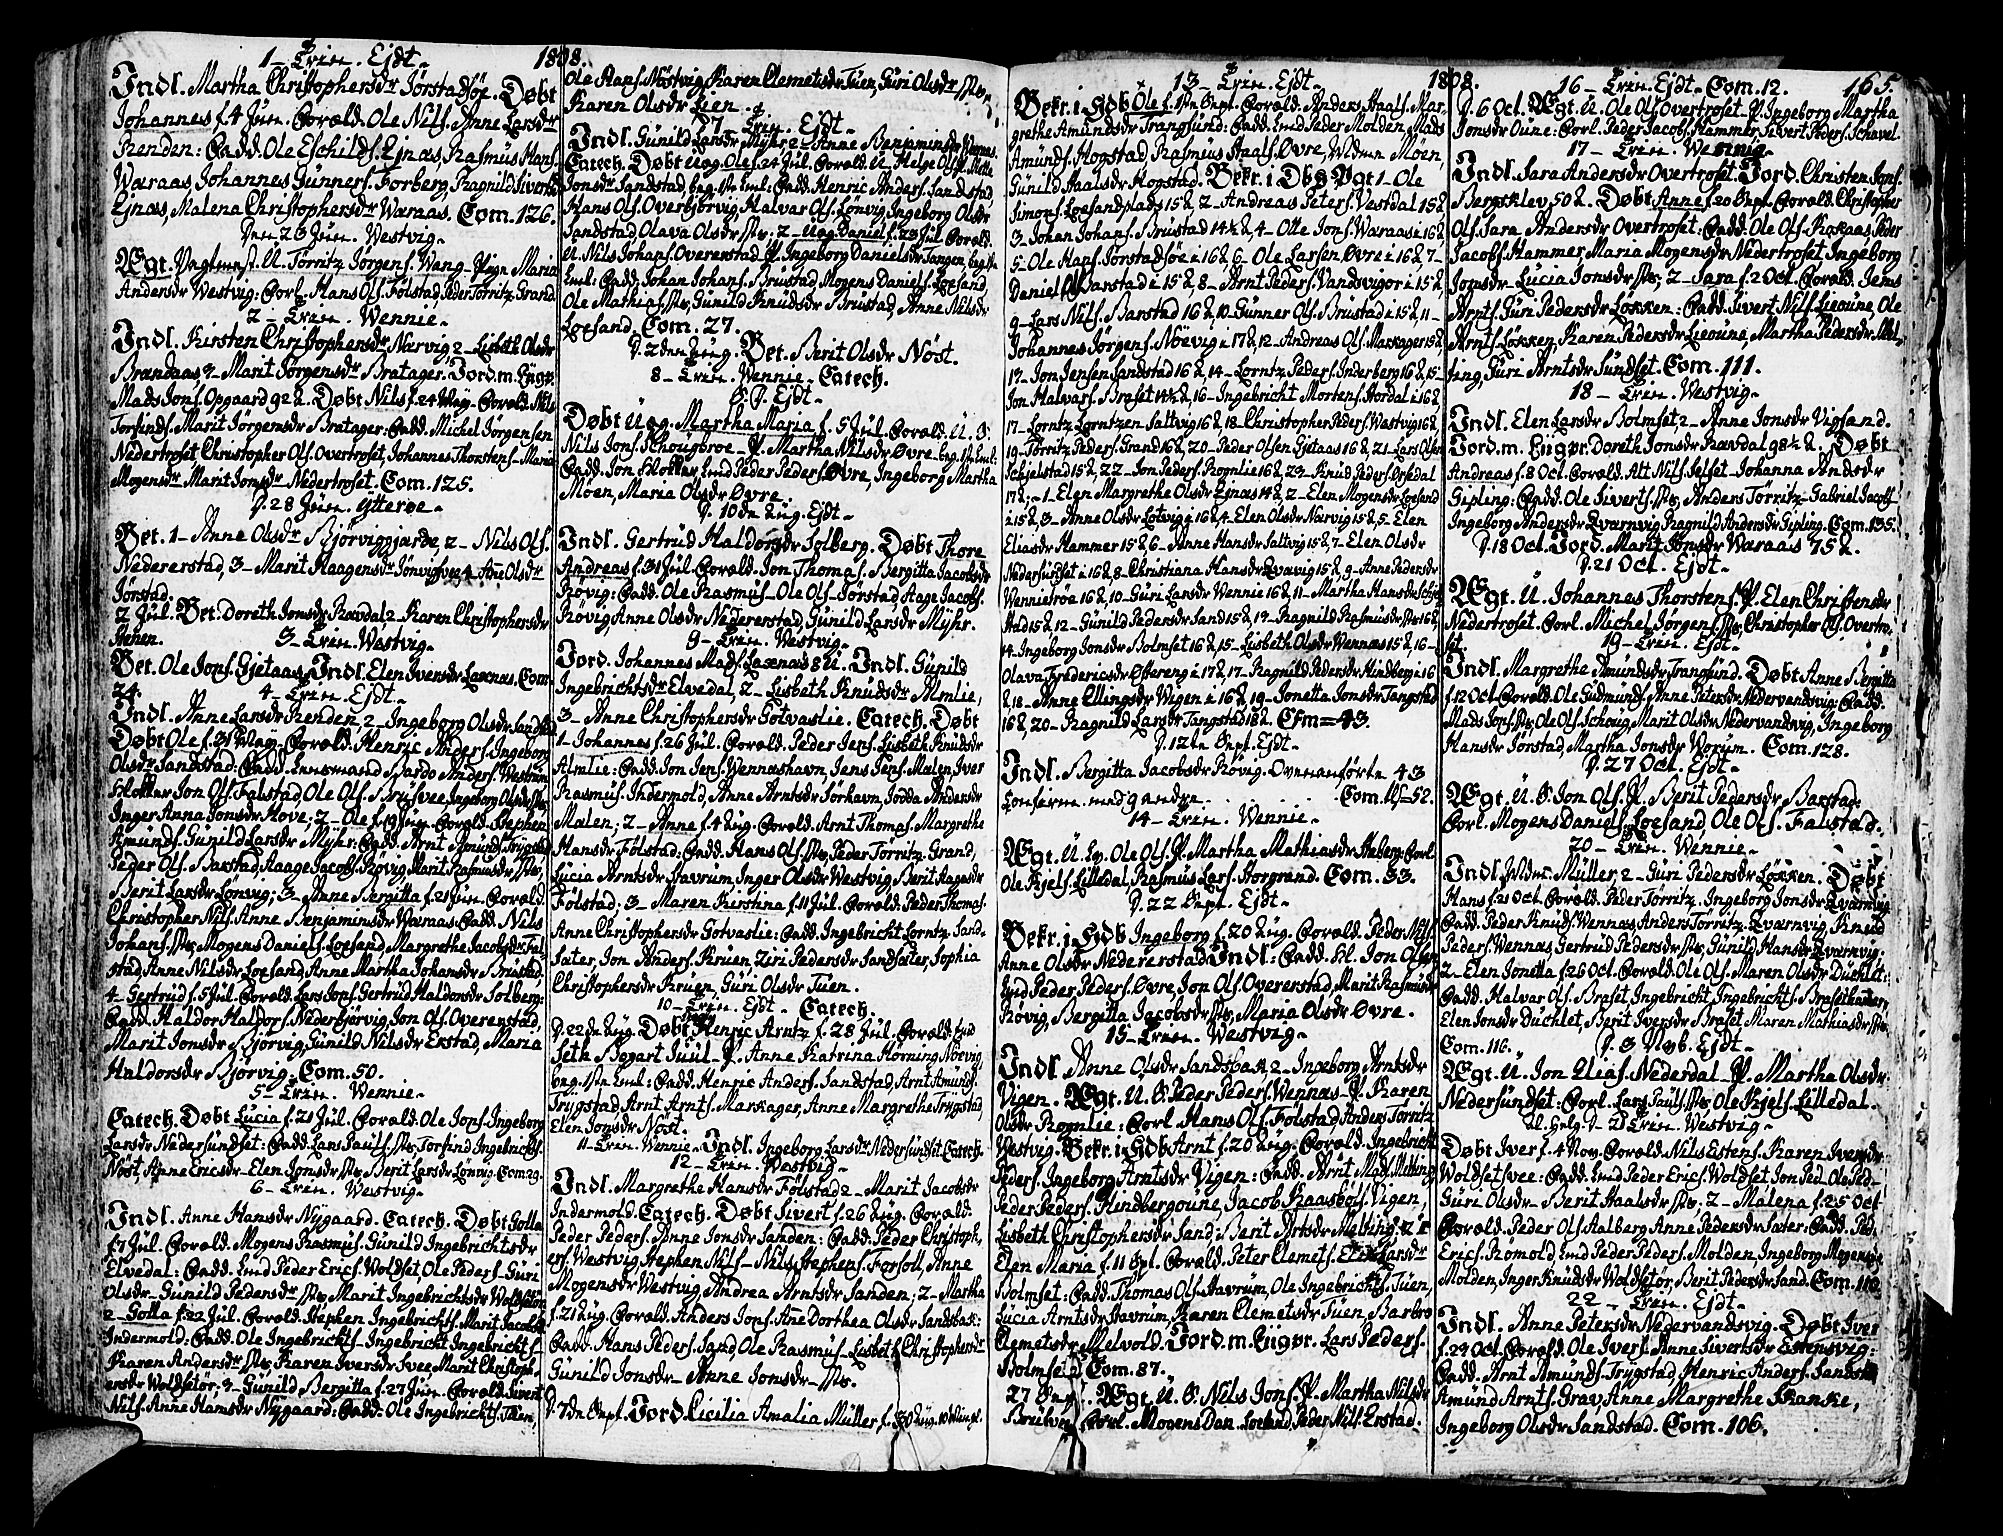 1 - Trin. Ejdt. 1808.
Indl. Martha Christophersdr Jørstadsøe. Døbt
Johannes f. 4 Jun. Foræld. Ole Nils. Anne Larsdr
Renden: Fadd. Ole Eschilds. Ejnæs, Rasmus Hans.
Waraas, Johannes Gunners. Forberg, Ragnild Sivertsdr
Ejnæs, Malena Christophersdr Warnas. Com. 126.
Den 23 Jun. Westvig.
Ægt. U. Törritz Jörgens. Wang - Maria
Andersdr Westvig: Forl. Hans Ols. Følstad Peder Törritz. Grand.
2 - Trin. Wennie.
Indl. Kirsten Christophersdr Narvig 2 - Lisbeth Olsdr
Brandaas 3 - Marit Jörgensdr Bratager. Jord. m. Ligpr.
Mads Jons. Opgaard 92 å. Døbt Nils f. 24 May. Foræld. Nils
Torfinds. Marit Jörgensdr Bratager: Fadd. Michel Jörgensen
Nedertroset, Christopher Ols. Overtroset, Johannes Thorstens. Maria
Mogensdr Marit Jonsdr Nedertroset. Com. 125.
D. 28 Jun. Ytterøe.
Bet. 1 - Anne Olsdr Bjørviggjarde, 2 - Nils Ols.
Nedererstad, 3 - Marit Haagensdr 4 - Anne Olsdr
Jørstad.
2 Jul. Bet. Doreth Jonsdr Ravdal 2 - Karen Christophersdr
Stenen. 3 - Trin. Westvig.
Bet. Ole Jons. Gjetaas. Indl. Elen Iversdr Laxnas. Com.
24. 4 - Trin. Ejdt.
Indl. Anne Larsdr Renden, 2 - Ingeborg Olsdr Sandstad
Døbt Ole f. 31 May. Foræld. Henric Anders. Ingeborg
Olsdr Sandstad: Fadd. Lensmand Bardo Anders. Westrum
Klokker Jon Ols. Falstad, Ole Ols. Brusvee Ingeborg Olsdr
Inger Anna Jonsdr Hove, 2 - Ole f. 19 Jun. Foræld. Stephen
Amunds. Gunild Larsdr Myhr. Fadd. Arnt Amunds. Trygstad
Peder Ols. Barstad, Haage Jacobs. Røvig Marit Rasmusdr
Berit Larsdr Lønvig; 3 - Anne Bergitta f. 28 Jun. Foræld.
Christopher Nils. Anne Benjaminsdr Waraas. Fadd. Nils
Johans. Mogens Daniels. Loesand Margrethe Jacobsdr
stad Anne Nilsdr Loesand, Anne Martha Johansdr Brustad.
4 - Gertrud f. 5 Jul. Foræld. Lars Jons. Gertrud Haldorsdr Solberg:
Fadd. Haldor Haldors. Nederbjørvig, Jon Ols. Overenstad,
Marit Jonsdr Bjorvig, Gunild Nilsdr Erstad, Maria
Haldorsdr Bjorvig. Com. 50.
5 - Trin. Wennie.
Catech. Døbt Lucia f. 21 Jul. Foræld. Ole Jons. Ingeborg
Larsdr Nedersundset: Fadd. Lars Pauls. Torfind Ingebrichts.
Nøst, Anne Ericsdr - Elen Jonsdr Berit Larsdr Lønvig. Com. 29.
6 - Trin. Westvig.
Indl. Anne Hansdr Nygaard. Catech. Døbt Golla
f. 7 Jul. Foræld. Mogens Rasmus. Gunild Ingebrichtsdr
Elvedal: Fadd. Peder Erics. Woldset Ole Peders. Guri
Olsdr - Gunild Pedersdr Marit Ingebrichtsdr Woldsetør
2 - Golla f. 22 Jul. Foræld. Stephen Ingebrichts. Marit Jacobsdr
Indermold: Fadd. Ole Ingebrichts. Ingebricht Ingebrichts.
Karen Andersdr Karen Iversdr Svee Marit Christoph-
ersdr Woldsetør; 3 - Gunild Bergitta f. 27 Jun. Foræld. Sivert
Nils. Anne Hansdr Nygaard: Fadd. Ole Ingebrichts. Tuen,
Ole Hans. Nøstvig Karen Clemetsdr Tuen, Guri Olsdr
Karen Olsdr Lien.
7 - Trin. Ejdt.
Indl. Gunild Larsdr Myhr 2 - Anne Benjaminsdr
Catech. Døbt Uæg. Ole f. 24 Jul. Foræld. U. Helge Ols. Mette
Jonsdr Sandstad, beg. 1ste Leml. Fadd. Henric Anders. Sandstad
Hans Ols. Overbjorvig, Halvar Ols. Lønvig, Ingeborg Olsdr
Sandstad Olava Olsdr 2 - Uæg. Daniel f. 23 Jul. Foræld.
U. Nils Johans. Overerstad P. Ingeborg Danielsdr Tangen
Leml: Fadd. Johan Johans. Brustad Mogens Daniels. Loesand
Ole Mathias. Gunild Knudsdr Brustad, Anne Nilsdr
Loesand. Com. 27.
D. 2den Aug. Bet. Berit Olsdr Nøst.
8 - Trin. Wennie. Catech.
Ejdt.
Døbt Uæg. Martha Maria f. 5 Jul. Foræld. U. S.
Nils Jons. Schougbroe - P. Martha Nilsdr Øvre
Fadd. Jon Klokker Peder Peders. Øvre, Ingeborg Martha
Møen, Maria Olsdr Øvre.
D. 10de Aug. Ejdt.
Indl. Gertrud Haldorsdr Solberg. Døbt Thore
Andreas f. 31 Jul. Foræld. Jon Thomas. Bergitta Jacobsdr
Røvig: Fadd. Ole Rasmus. Ole Ols. Jorstad, Hage Jacobs.
Røvig, Anne Olsdr Nedererstad, Gunild Larsdr Myhr.
9 - Trin. Westvig.
Jord. Johannes Mads. Laxenas 8 U. Indl. Gunild
Ingebrichtsdr Elvedal, 2 - Lisbeth Knudsdr Almlie,
3 - Anne Christophersdr Gotvaslie. Catech. Døbt
1 - Johannes f. 26 Jul. Foræld. Peder Jens. Lisbeth Knudsdr
Almlie: Fadd. Jon Jens. Wennashavn, Jens Jens. Malen, Iver
Rasmus. Indermold, Anne Arntsdr Sørhavn, Jodda Andersdr
Malen; 2 - Anne f. 4 Aug. Foræld. Arnt Thomas. Margrethe
Hansdr Følstad: Fadd. Hans Ols. Peder Törritz. Grand,
Lucia Arntsdr Havrum, Inger Olsdr Westvig, Berit Aagesdr
Følstad; 3 - Maren Kirstina f. 11 Jul. Foræld. Peder Thomas.
Anne Christophersdr Gotvaslie: Fadd. Ingebricht Lorntz. Sand-
sater, Jon Anders. Kruen Ziri Pedersdr Sandsater, Sophia
Christophersdr Kruen, Guri Olsdr Tuen.
10 - Trin. Ejdt. Catech.
D. 22de Aug. Døbt Henric Arntz f. 28 Jul. Foræld.
Seth Bogart Juul - P. Anne Katrina Horning Noevig,
beg. 1ste Leml: Fadd. Henric Anders. Sandstad, Arnt Amunds.
Trygstad, Arnt Arnts. Markager, Anne Margrethe Trygstad,
Elen Jonsdr Nøst.
11 - Trin. Wennie. Indl. Ingeborg Larsdr Nedersundset Catech.
12 - Trin. Westvig.
Indl. Margrethe Hansdr Følstad 2 - Marit Jacobsdr
Indermold. Catech. Døbt Sivert f. 26 Aug. Foræld.
Peder Peders. Anne Jonsdr Sanden: Fadd. Peder Christoph-
ers. Westvig Stephen Nils. Nils Stephens. Forsoll, Anne
Mogensdr Westvig, Andrea Arntsdr Sanden; 2 - Martha
f. 21 Aug. Foræld. Anders Jons. Ane Dorthea Olsdr Sandsbak:
Fadd. Hans Peders. Sand, Ole Rasmus. Lisbet Christophersdr
Gunild Jonsdr - Anne Jonsdr
D. 7de Sept. Jord. Cicilia Amalia Müller f. 30 Aug.
13 - Trin. Ejdt. 1808.
Bekr. i Hdb Ole f. Sept. Foræld. Anders Haals. Mar-
grethe Amundsdr Trangsund: Fadd. Peder Molden Mads
Amunds. Hogstad, Rasmus Haals. Øvre, Møen,
Gunild Haalsdr Hogstad. Bekr. i Dbs Pgt 1 - Ole
Simons. Loesandplads 15 å 2 - Andreas Peters. Vestdal 15 å
3 - Johan Johans. Brustad 14½ å, 4 - Otte Jons. Waraas 16 å
5 - Ole Hans. Jorstadsøe i 16 å 6 - Ole Larsen Øvre i 16 å, 7 -
Daniel Ols. Barstad i 15 å, 8 - Arnt Peders. Vandsvigor i 15 å,
9 - Lars Nils. Barstad 16 å, 10 Gunner Ols. Brustad i 15 å, 11 -
Johannes Jörgens. Nöevig i 17 å, 12 - Andreas Ols. Markager 15 å,
13 - Jon Jensen Sandstad 16 å, 14 - Lorntz Peders. Inderberg 16 å, 15 -
Jon Halvars. Braset 14½ å, 16 - Ingebricht Mortens. Hordal i 16 å
17 - Lorntz Lorntzen Saltvig 16 å 18 - Christopher Peders. Westvig 16 å
19 - Törritz Peders. Grand 16 å, 20 - Peder Olsen Gjetaas 16 å, 21 - Lars Olsen
Schjelstad 15 å, 22 - Jon Peders. Rognlie 16 å 23 - Knud Peders. Ørsdal
17 å: - 1 - Elen Margrethe Olsdr Ejnæs 14 å, 2 - Elen Mogensdr Loesand
i 15 å, 3 - Anne Olsdr Lotvig i 16 å 4 - Elen Olsdr Narvig 15 å, 5 - Elen
Eliasdr Hammer 15 å 6 - Anne Hansdr Saltvig 15 å, 7 - Elen Olsdr
Nedersundset i 16 å, 8 - Christiana Hansdr 15 å, 9 - Anne Pedersdr
Wennietrøa 16 å, 10 - Guri Larsdr Wennie 16 å 11 - Martha Hansdr
stad 15 å, 12 - Gunild Pedersdr Sand 15 å, 13 - Ragnild Rasmusdr 16 å
14 - Ingeborg Jonsdr Bolmset 16 å, 15 - Lisbeth Olsdr Wennas 15 å, 16 -
Olava Fredericsdr Østereng i 17 å, 17 - Ragnild Pedersdr Hindberg i 16
å, 18 - Anne Ellingsdr Wigen i 16 å 19 - Jonetta Jonsdr Tangstad
16 å, 20 - Ragnild Larsdr Tangstad 18 å. Cfm = 43.
D. 12te Sept. Ejdt.
Indl. Bergitta Jacobsdr Røvig. Ovenanførte 43
Confirm. med 9 andre. Com. = 52.
14 - Trin. Wennie.
Ægt. U. Ole Ols. P. Martha Mathiasdr Aaberg. Forl.
Ole Kjels. Lilledal, Rasmus Lars. Storgrand. Com. 33.
D. 22 Sept. Ejdt.
Bekr. i Hdb Ingeborg f. 20 Aug. Foræld. Peder Nils.
Anne Olsdr Nedererstad. Indl: Fadd. Kl. Jon Olsen
Peder Peders. Øvre, Jon Ols. Overerstad, Marit Rasmusdr
Røvig, Bergitta Jacobsdr Maria Olsdr Øvre.
15 - Trin. Westvig.
Indl. Anne Olsdr Sandsbak 2 - Ingeborg Arntsdr
Vigen. Ægt. U. S. Peder Peders. Wennas - P. Karen
Olsdr Rognlie: Forl. Hans Ols. Følstad Anders Törritz.
Westvig. Bekr. i Hdb Arnt f. 20 Aug. Foræld. Ingebricht
Peders. Ingeborg Arntsdr Vigen: Fadd. Arnt Mads. Melting,
Peder Peders. Hendbergoune, Jacob Haasbøls. Vigen,
Lisbeth Christophersdr Sand, Berit Arntsdr Melting, 2 -
Elen Maria f. 11 Spt. Foræld. Peter Clemets. Larsdr
Bolmset: Fadd. Thomas Ols. Havrum, Ole Ingebrichts. Tuen,
Lucia Arntsdr Havrum, Karen Clemetsdr Tuen, Barbro
Clemetsdr Melvold. Jord. m. Ligpr. Lars Peders.
Bolmset. Com. 87.
27 Sept. Ægt. U. S. Nils Jons. P. Martha Nilsdr
Forl. Mogens Dan. Loesand, Peder Nils. Erstad.
16 - Trin. Ejdt. Com. 12. 165.
D. 6 Oct. Ægt. U. Ole Ols. Overtroset - P. Ingeborg Martha
Jonsdr Oune: Forl. Peder Jacobs. Hammer Sivert Peders. Schavel.
17 - Trin. Wennie.
Indl. Sara Andersdr Overtroset. Jord. Christen Jons.
Bergsklev 50 å. Døbt Anne f. 20 Sept. Foræld. Christopher
Ols. Sara Andersdr Overtroset: Fadd. Ole Ols. Rokaas Peder
Jacobs. Hammer Maria Mogensdr Nedertroset Ingeborg
Jonsdr - Lucia Jonsdr 2 - Sara f. 2 Oct. Foræld. Jens
Arnts. Guri Pedersdr Løkken: Fadd. Sivert Nils. Leoune, Ole
Arnts. Løkken Karen Pedersdr Leoune, Martha Pedersdr Mel-
ting, Guri Arntsdr Sundset. Com. 111.
18 - Trin. Westvig.
Indl. Elen Larsdr Bolmset 2 - Anne Jonsdr Vigsand.
Jord. m. Ligpr. Doreth Jonsdr Ravdal 98½ å. Døbt
Andreas f. 8 Oct. Foræld. Alt Nils. Jelset Johanna Andsdr
Gipling. Fadd. Ole Siverts. Anders Törritz. Gabriel Jacobs.
Ingeborg Andersdr Qvarnvig Ragnild Andersdr Gipling. Com. 135.
D. 18 Oct. Jord. Marit Jonsdr Waraas 75 å.
D. 21 Oct. Ejdt.
Ægt. U. Johannes Thorstens. P. Elen Christensdr
Nedertroset. Forl. Michel Jörgens. Christopher Ols. Overtro-
set. 19 - Trin. Ejdt.
Indl. Margrethe Amundsdr Trangsund. Døbt Anne Bergitta
f. 12 Oct. Foræld. Ole Gudmunds. Anne Petersdr Nedervandsvig: Fadd.
Mads Jons. Ole Ols. Schoug, Marit Olsdr Nedervandvig, Ingeborg
Hansdr Jørstad, Martha Jonsdr Worum. Com. 128.
D. 27 Oct. Ejdt.
Ægt. U. S. Jon Ols. P. Berit Pedersdr Barstad.
Forl. Mogens Daniels. Loesand, Ole Ols. Falstad.
20 - Trin. Wennie.
Indl. Müller, 2 - Guri Pedersdr Løkken. Døbt
Hans f. 21 Oct. Foræld. Peder Törritz. Ingeborg Jonsdr Qvarnvig
Fadd. Peder Knuds. Wennas Anders Törritz. Qvarnvig, Knud
Peders. Wennas Gertrud Pedersdr Gunild Hansdr Qvarnvig.
2 - Elen Jonetta f. 26 Oct. Foræld. Ole Ols. Maren Olsdr Duchlet:
Fadd. Halvar Ols. Braset Ingebricht Ingebrichts. Brasethammer,
Elen Jonsdr Duchlet, Berit Iversdr Braset Maren Mathiasdr
Com. 116. D. 3 Nvb. Ejdt.
Ægt. U. Jon Elias. Nederdal - P. Martha Olsdr
Nedersundset: Forl. Lars Pauls. Ole Kjels. Lilledal.
Al. Helg. D. 21 Trin. Westvig.
Døbt Iver f. 4 Nov. Foræld. Nils Estens. Karen Iversdr
Woldsetsvee: Fadd. Peder Erics. Woldset Jon Ped. Ole Ped.
Guri Olsdr - Berit Haalsdr 2 - Malena f. 25 Oct
Foræld. Peder Ols. Aalberg Anne Pedersdr Sater: Fadd. Ped.
Erics. Romold Peder Peders. Molden, Ingeborg Mogensdr
Molden, Inger Knudsdr Woldsetør, Berit Pedersdr Sand. Com. 110
22 - Trin. Ejdt.
Indl. Anne Petersdr Nedervandsvig. Døbt Iver
f. 23 Oct. Foræld. Ole Ivers. Anne Sivertsdr
Fadd. Arnt Amunds. Trygstad, Henric Anders. Sandstad
Amund Arnts. Grav Anne Margrethe Skanke,
Ingeborg Olsdr Sandstad. Com. 106.